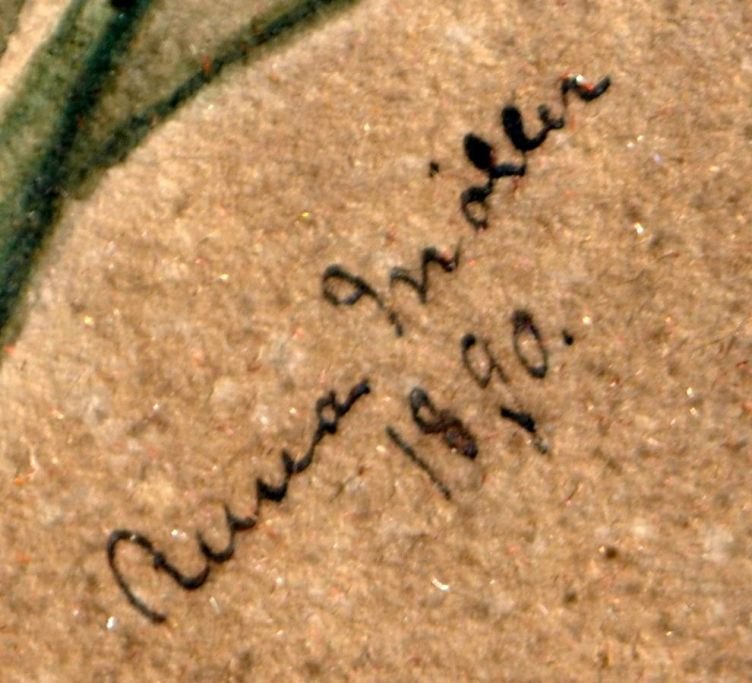 Anna Möller
1890.